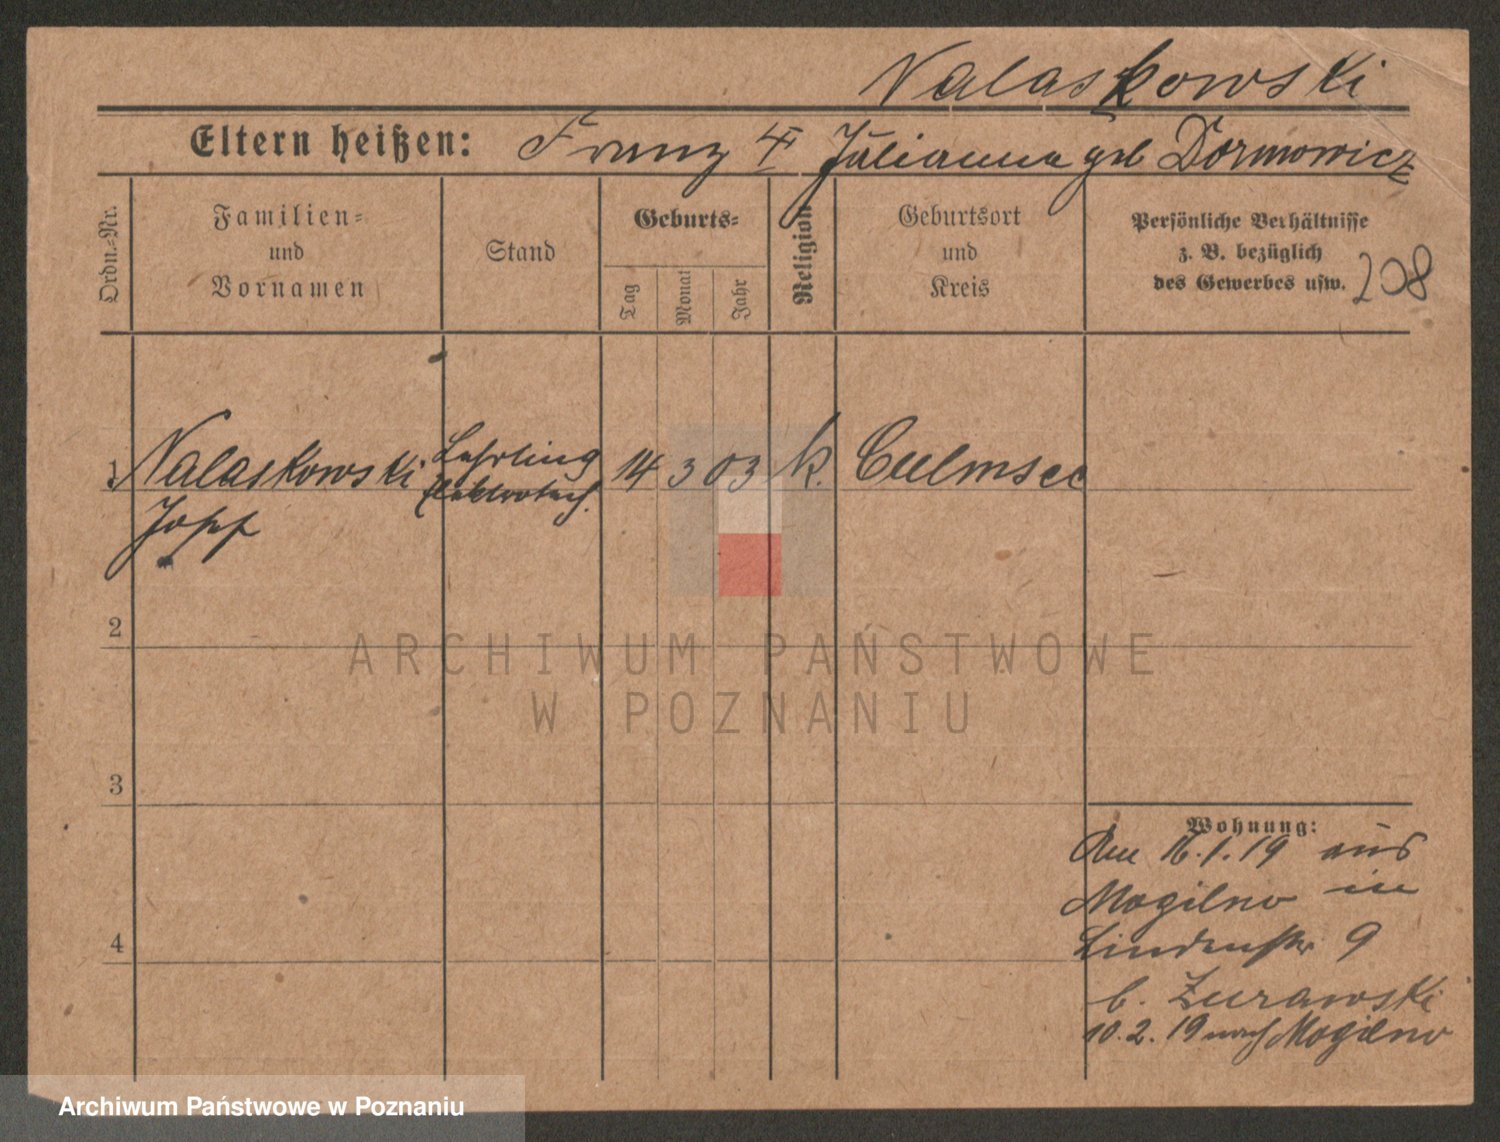 Nalaskowski
Eltern heißen: Franz u Julianna geb Dormowicz
Ordn.-Nr.
Familien-
und
Vornamen
Stand
Geburts-
Tag
Monat
Jahr
Religion
Geburtsort
und
Kreis
Persönliche Verhältnisse
z. B. bezüglich
des Gewerbes usw.
208
1 Nalaskowski Lehrling 14 3 03 k. Culmsee
Elektrotech.
Josef
2
ARCHIWUM PAŃSTWOWE
W POZNANIU
3
Wohnung:
Am 16.1.19 aus
Mogilno in
Lindenstr 9
4
b. Zurawski
10.2.19 nach Mogilno
Archiwum Państwowe w Poznaniu